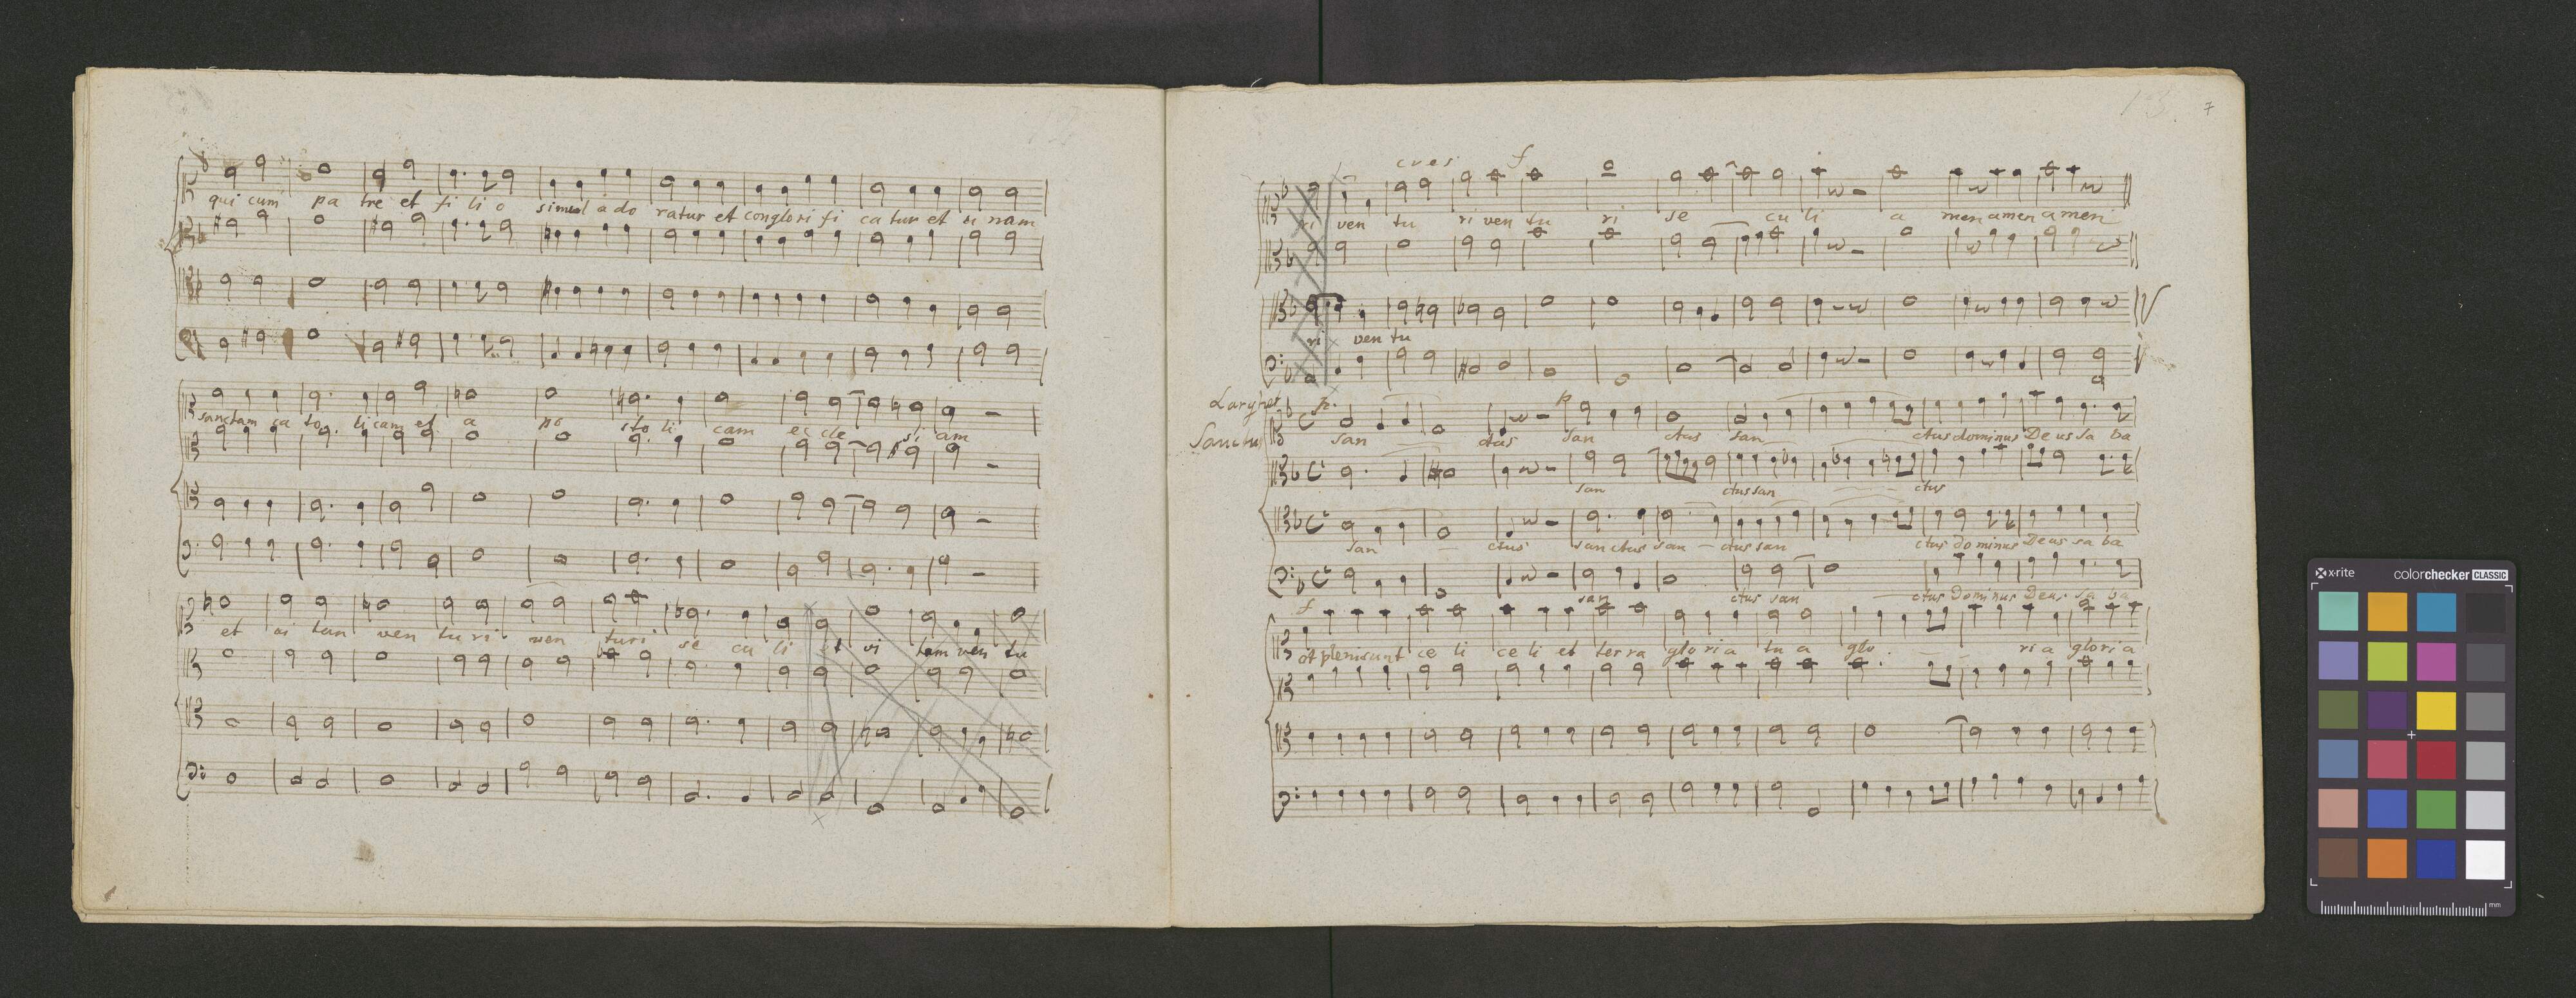 qui cum pa tre et fi li o simul a do ratur et conglori fi ca tur et u nam
sanctam ca to li cam et a po sto li cam ec cle si am
et vi tam ven tu ri ven turi se cu li et vi tam ven tu
7
cres. f
ri ven tu ri ven tu ri se cu li a men amen amen
ri ven tu
Larghet p. p
Sanctus
san ctus san ctus san ctus dominus De us sa ba
san ctus san ctus
san ctus sanctus san ctus san ctus do minus Deus sa ba
san ctus san ctus Dominus Deus sa ba
f
et plenisunt ce li ce li et ter ra glo ri a tu a glo ri a glori a
x-rite colorchecker CLASSIC
mm